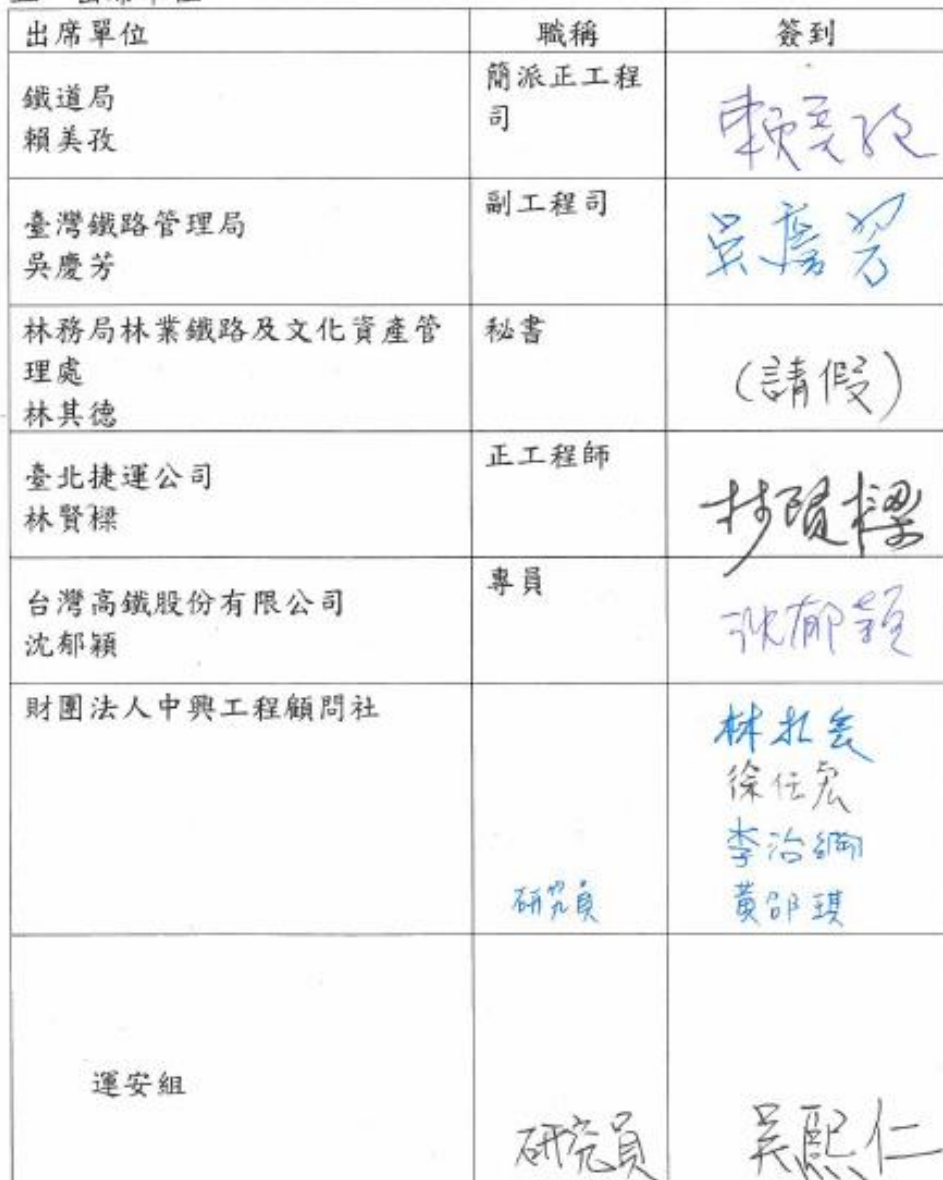 出席單位 職稱 簽到
鐵道局
賴美孜
簡派正工程
司
賴美孜
臺灣鐵路管理局
吳慶芳
副工程司
吳慶芳
林務局林業鐵路及文化資產管
理處
林其德
秘書
(請假)
臺北捷運公司
林賢樑
正工程師
林賢樑
台灣高鐵股份有限公司
沈郁穎
專員
沈郁穎
財團法人中興工程顧問社
徐任宏
李治綱
研究員 黃郃琪
運安組
研究員 吳熙仁